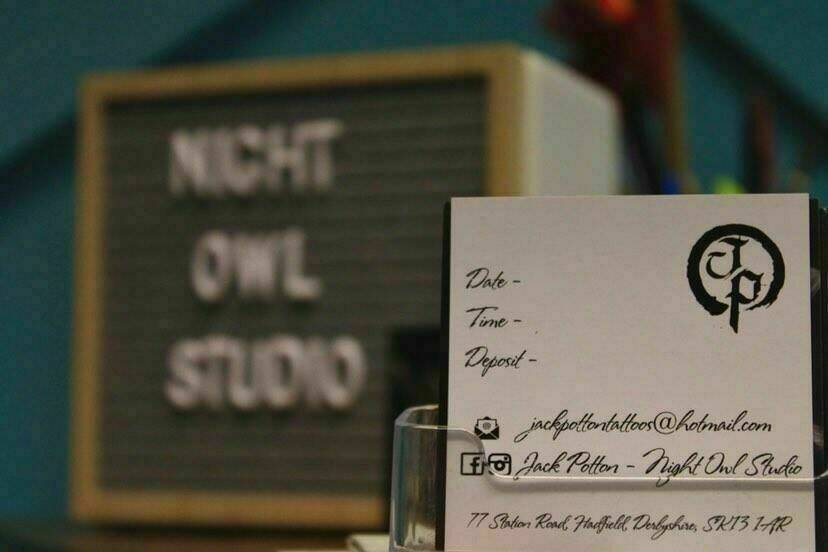 NIGHT
OWL
STUDIO
JP
Date -
Time -
Deposit -
jackpottontattoos@hotmail.com
Jack Potton - Night Owl Studio
77 Station Road, Hadfield, Derbyshire, SK13 1AR